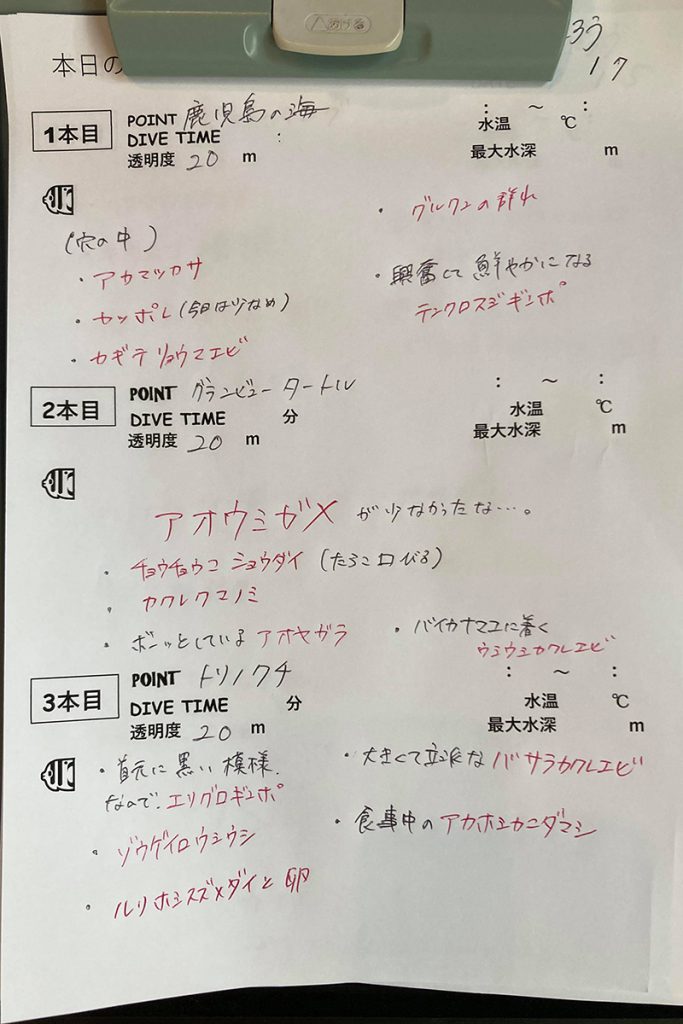 本日の
ろう
17
1本目
POINT 鹿児島の海
DIVE TIME :
透明度 20 m
: ～ :
水温 ℃
最大水深 m
(穴の中)
・アカマツカサ
・センポレ(今日は少なめ)
・カギテリョウマエビ
・グルクンの群れ
・興奮して鮮やかになる
テンクロスジギンポ
2本目
POINT グランビュータートル
DIVE TIME 分
透明度 20 m
: ～ :
水温 ℃
最大水深 m
アオウミガメが少なかったな…。
・チョウチョウコショウダイ(たらこ口びる)
・カクレクマノミ
・ボーッとしているアオヤガラ
・バイカナマコに着く
ウミウシカクレエビ
3本目
POINT トリノクチ
DIVE TIME 分
透明度 20 m
: ～ :
水温 ℃
最大水深 m
・首元に黒い模様.
なので.エリグロギンポ
・ゾウゲイロウミウシ
・ルリホシスズメダイと卵
・大きくて立派なバサラカクレエビ
・食事中のアカホシカニダマシ